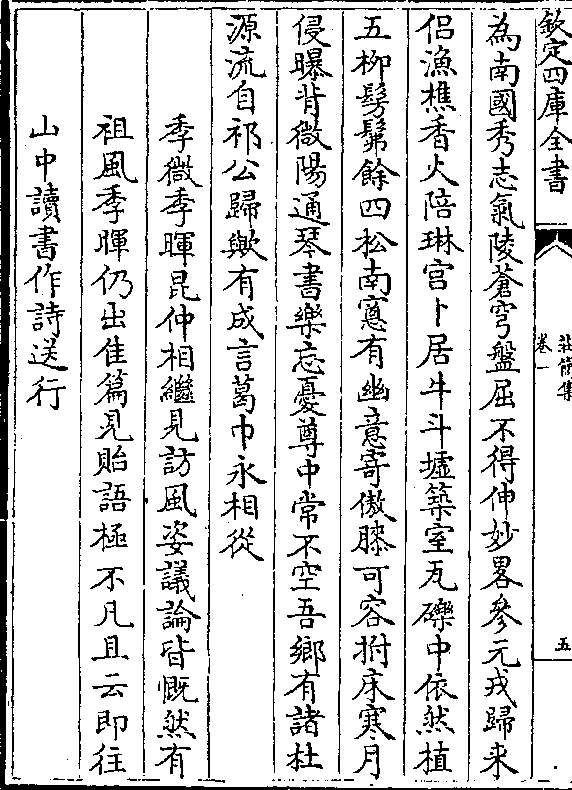 欽定四庫全書
莊簡集
卷一
五
為南國秀志氣陵蒼穹盤屈不得伸妙畧參元戎歸来
侣漁樵香火陪琳宫卜居牛斗墟築室瓦礫中依然植
五柳髣髴餘四松南窻有幽意寄傲膝可容拊床寒月
侵曝背微陽通琴書樂忘憂尊中常不空吾鄉有諸杜
源流自祁公歸歟有成言葛巾永相從
季微季暉昆仲相繼見訪風姿議論皆慨然有
祖風季暉仍出佳篇見貽語極不凡且云即往
山中讀書作詩送行